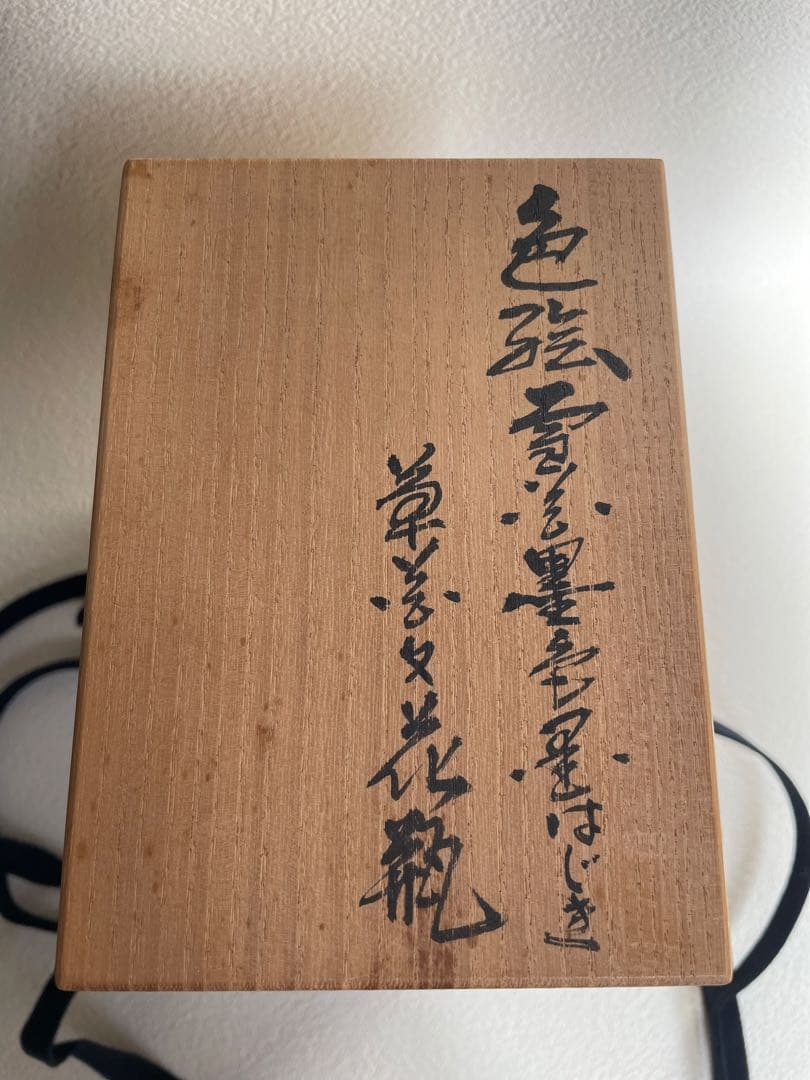 色絵雪花墨色墨はじき
草花文花瓶